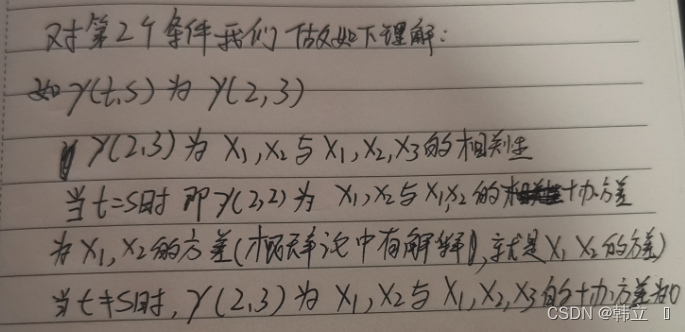 对第2个条件我们做如下理解:
如γ(t,s)为γ(2,3)
γ(2,3)为X1,X2与X1,X2,X3的相关性
当t=s时 即γ(2,2)为 X1,X2与X1,X2的协方差
为X1,X2的方差(概率论中有解释),就是X1 X2的方差)
当t≠s时,γ(2,3)为X1,X2与X1,X2,X3的协方差为0
CSDN @韩立